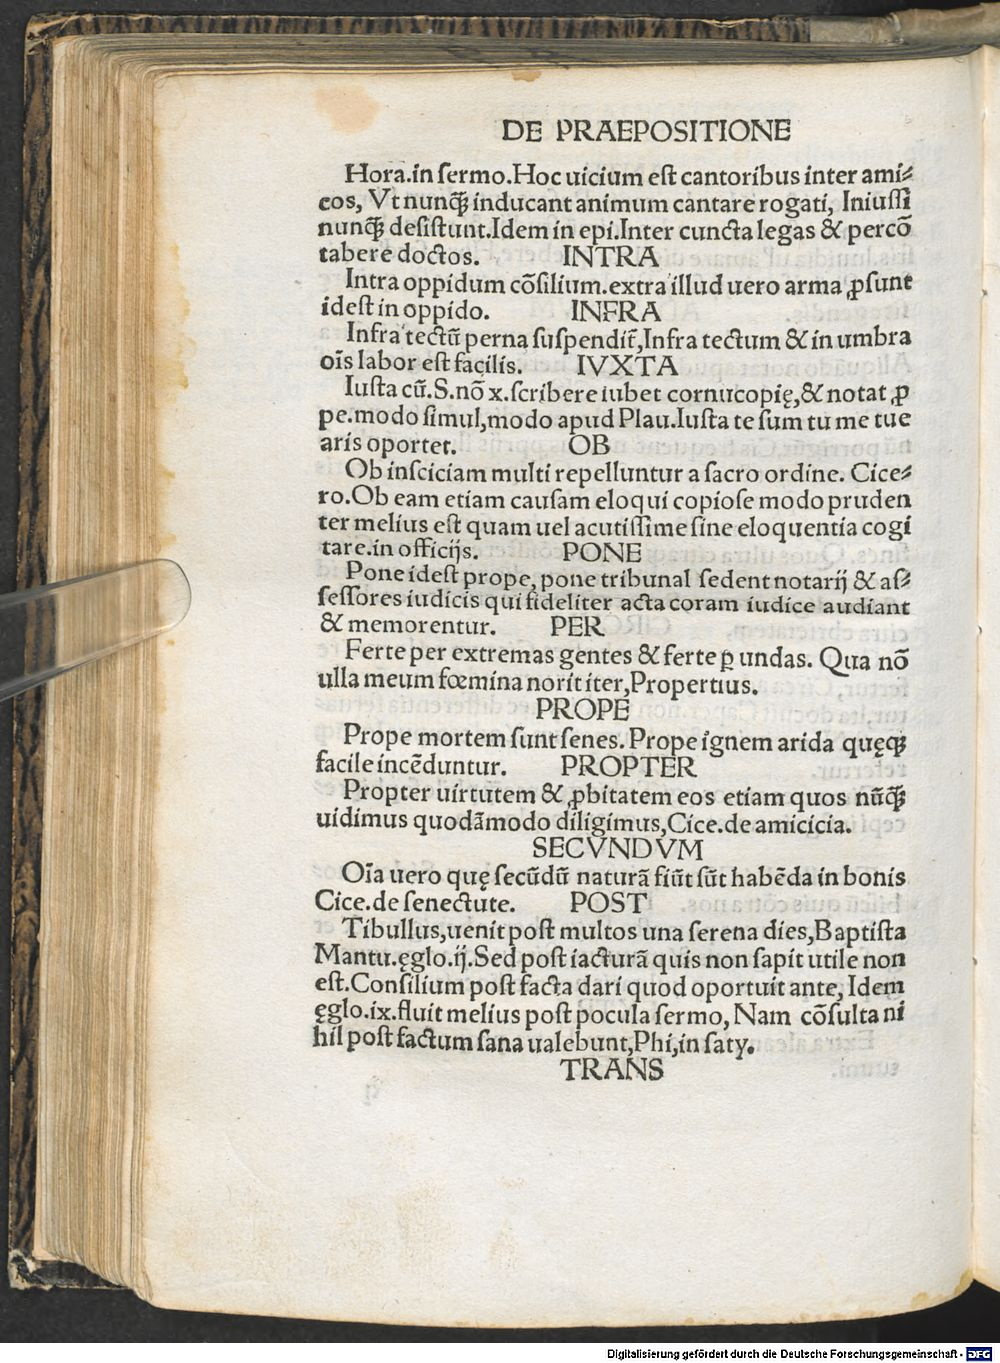 DE PRAEPOSITIONE
Hora.in ſermo.Hoc uicium eſt cantoribus inter ami⸗
cos, Vt nunq̃ꝫ inducant animum cantare rogati, Iniuſſi
nunq̃ꝫ deſiſtunt.Idem in epi.Inter cuncta legas & percō
tabere doctos. INTRA
Intra oppidum cōſilium.extra illud uero arma ꝓſunt
ideſt in oppido. INFRA
Infra tectū perna ſuſpendit̃,Infra tectum & in umbra
oīs labor eſt facilis. IVXTA
Iuſta cū.S.nō x.ſcribere iubet cornucopię,& notat ꝓ
pe.modo ſimul,modo apud Plau.Iuſta te ſum tu me tue
aris oportet. OB
Ob inſciciam multi repelluntur a ſacro ordine. Cice⸗
ro.Ob eam etiam cauſam eloqui copioſe modo pruden
ter melius eſt quam uel acutiſſime ſine eloquentia cogi
tare.in officijs. PONE
Pone ideſt prope, pone tribunal ſedent notarij & aſ⸗
ſeſſores iudicis qui fideliter acta coram iudice audiant
& memorentur. PER
Ferte per extremas gentes & ferte ꝑ undas. Qua nō
ulla meum fœmina norit iter,Propertius.
PROPE
Prope mortem ſunt ſenes. Prope ignem arida quęqꝫ
facile incēduntur. PROPTER
Propter uirtutem & ꝓbitatem eos etiam quos nūq̃ꝫ
uidimus quodāmodo diligimus,Cice.de amicicia.
SECVNDVM
Oīa uero quę ſecūdū naturā fiūt ſūt habēda in bonis
Cice.de ſenectute. POST
Tibullus,uenit poſt multos una ſerena dies,Baptiſta
Mantu.ęglo.ij.Sed poſt iacturā quis non ſapit utile non
eſt.Conſilium poſt facta dari quod oportuit ante, Idem
ęglo.ix.fluit melius poſt pocula ſermo, Nam cōſulta ni
hil poſt factum ſana ualebunt,Phi,in ſaty.
TRANS
Digitalisierung gefördert durch die Deutsche Forschungsgemeinschaft - DFG